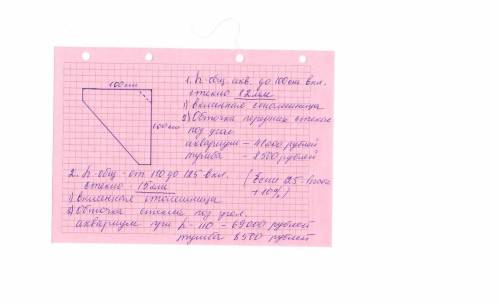 100 см
100 см
1. h-общ. акв. до 100 см вкл.
стекло 12 мм
1) Вклеенная столешница
2) Обточка передних стекол
под угол.
аквариум - 41000 рублей
тумба - 8500 рублей
2. h-общ. от 110 до 125 вкл.
стекло - 15 мм
(Если 25-
+10%)
1) Вклеенная столешница
2) Обточка стекла под угол.
аквариум при h-110 - 69000 рублей
тумба 8500 рублей